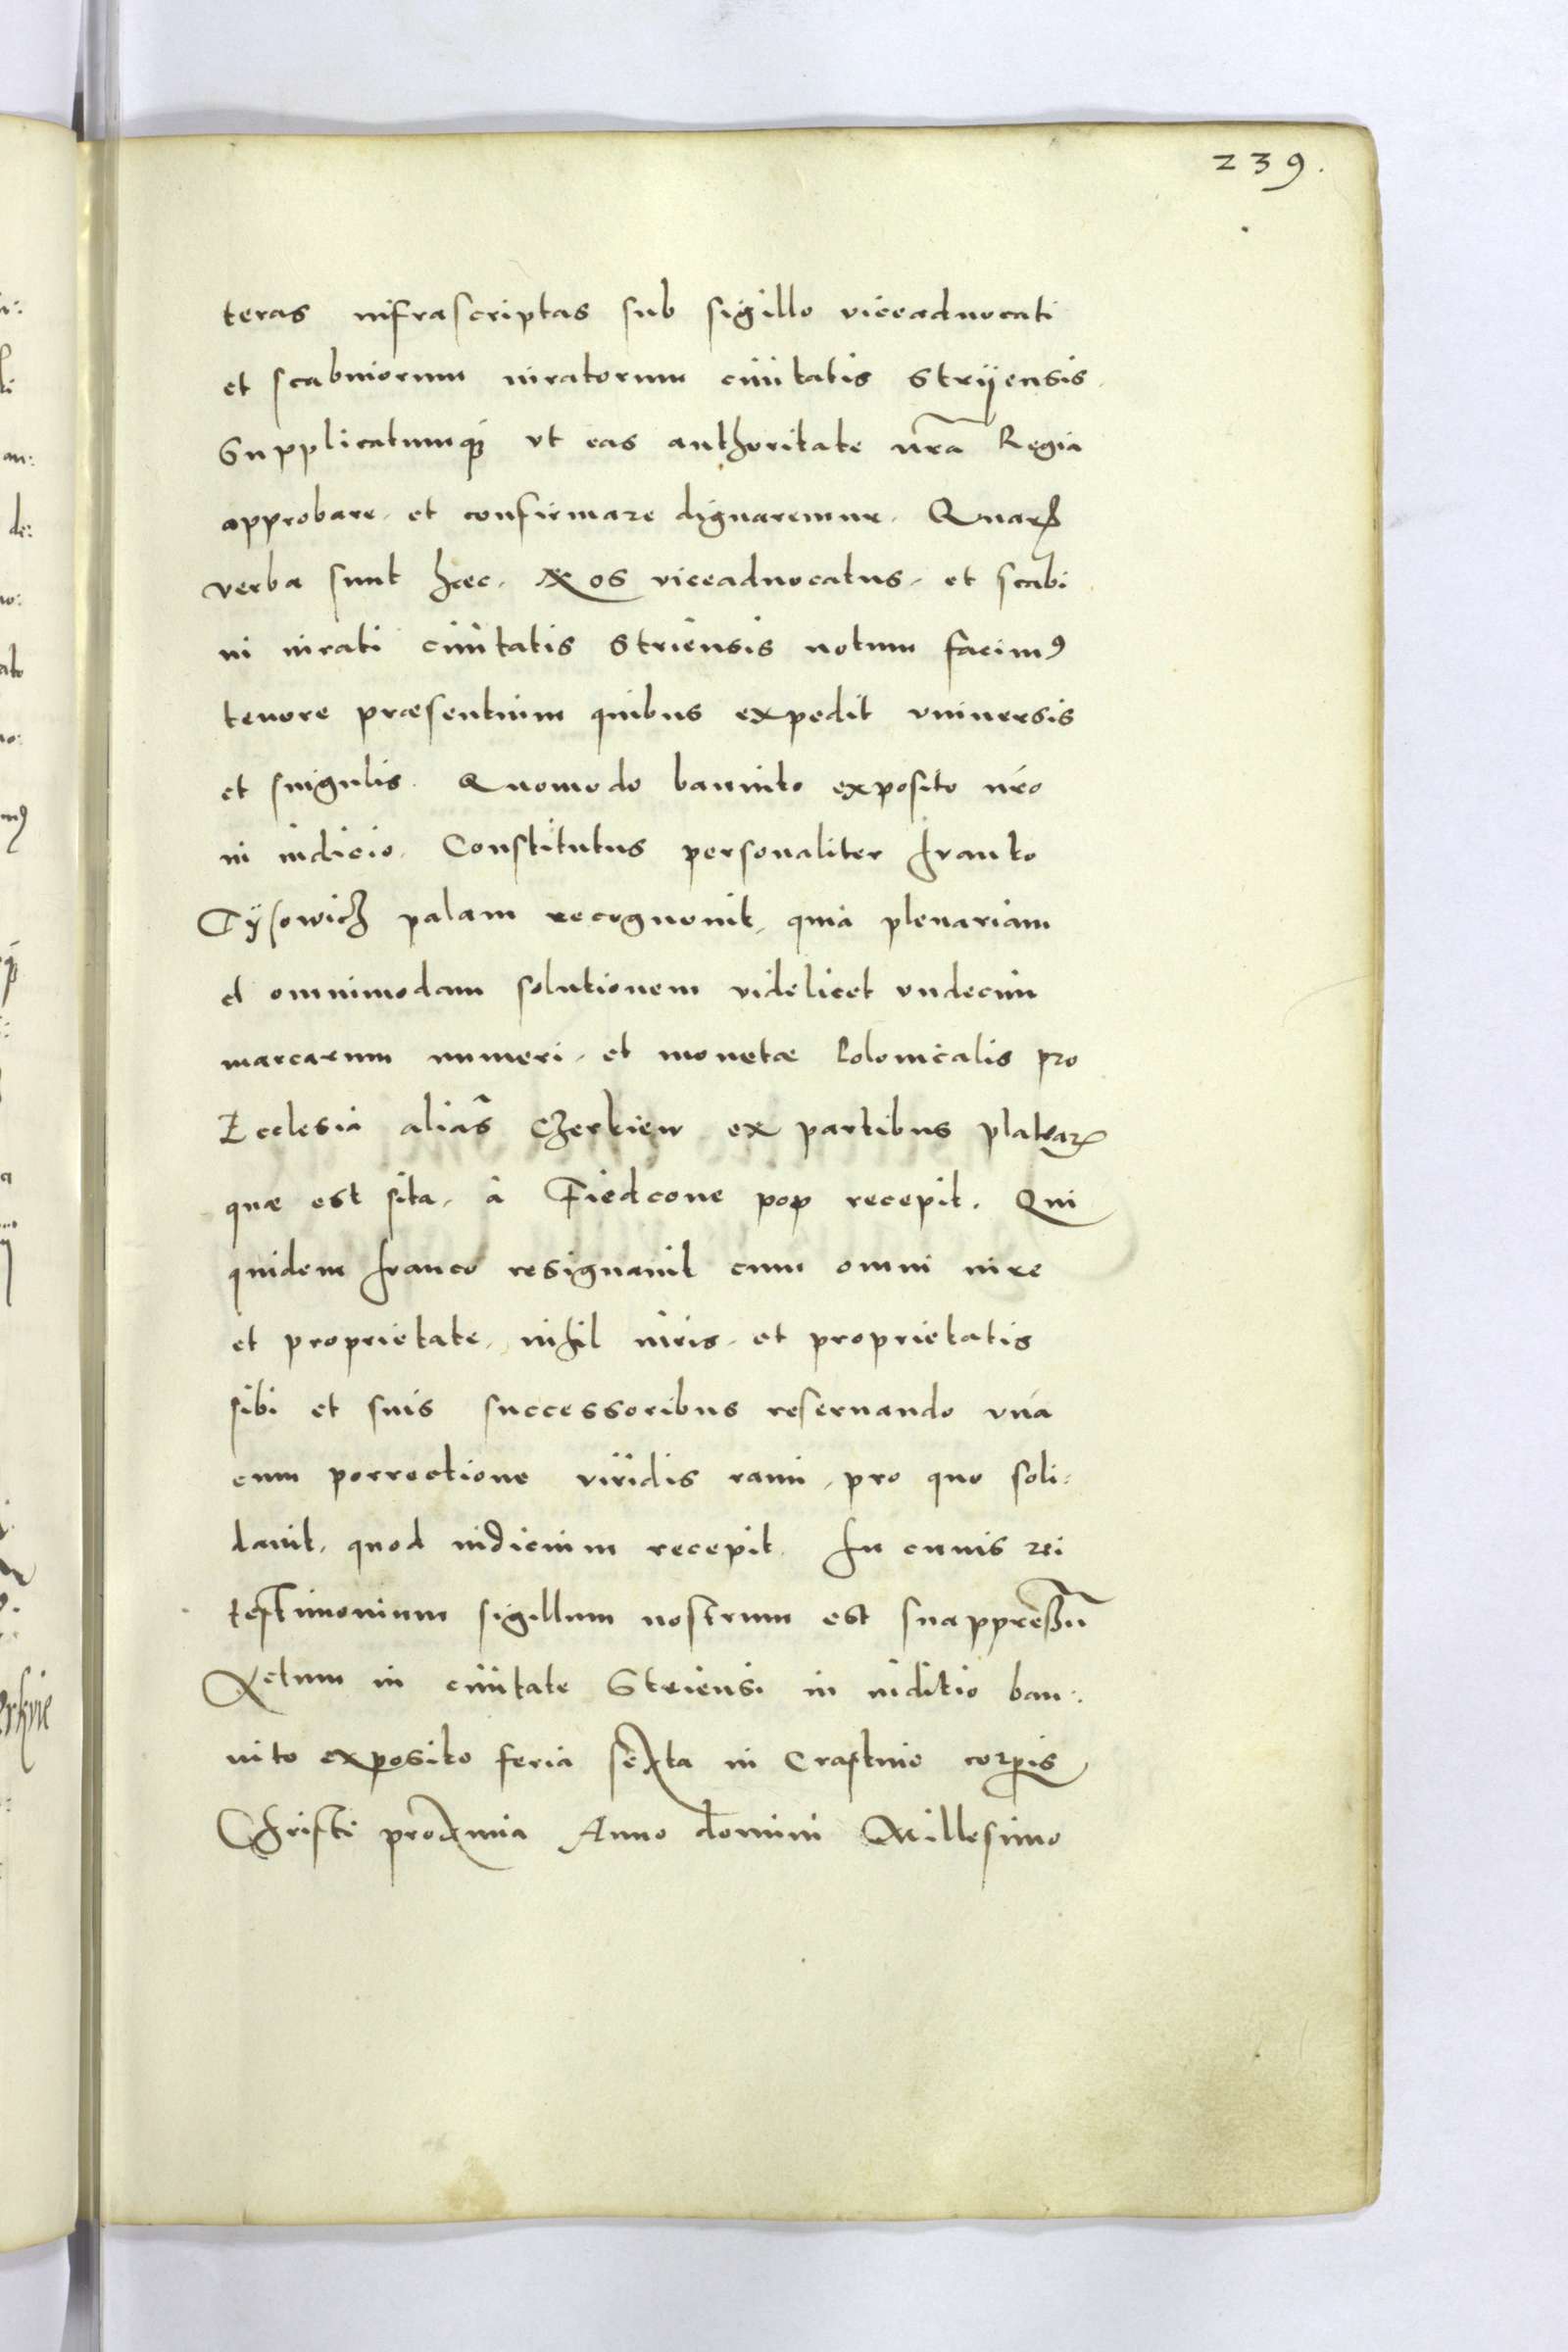 239.
teras infrascriptas sub sigillo viceaduocati
et scabinorum iuratorum ciuitatis Stryensis.
Supplicatumq́ue vt eas authoritate nr̃a Regia
approbare, et confirmare dignaremur. Quarꝝ
verba sunt hæc. Nos viceaduocatus, et scabi
ni iurati ciuitatis Striensis notum facimꝰ
tenore præsentium quibus expedit vniuersis
et singulis. Quomodo bannito exposito nr̃o
in iudicio. Constitutus personaliter Franko
Tÿsowich palam recognouit, quia plenariam
et omnimodam solutionem videlicet vndecim
marcarum numeri, et monetæ Polonicalis pro
Ecclesia alias Czerkiew ex partibus platearꝝ
quæ est sita, à Fiedcone pop recepit. Qui
quidem Franco resignauit cum omni iure
et proprietate, nihil iuris, et proprietatis
sibi et suis successoribus reseruando vná
cum porrectione viridis rami, pro quo soli:
dauit, quod iudicium recepit. In cuius rei
testimonium sigillum nostrum est suappressũ
Actum in ciuitate Striensi in iuditio ban:
nito exposito feria sexta in Crastino corp̱is
Christi proxima Anno domini Millesimo